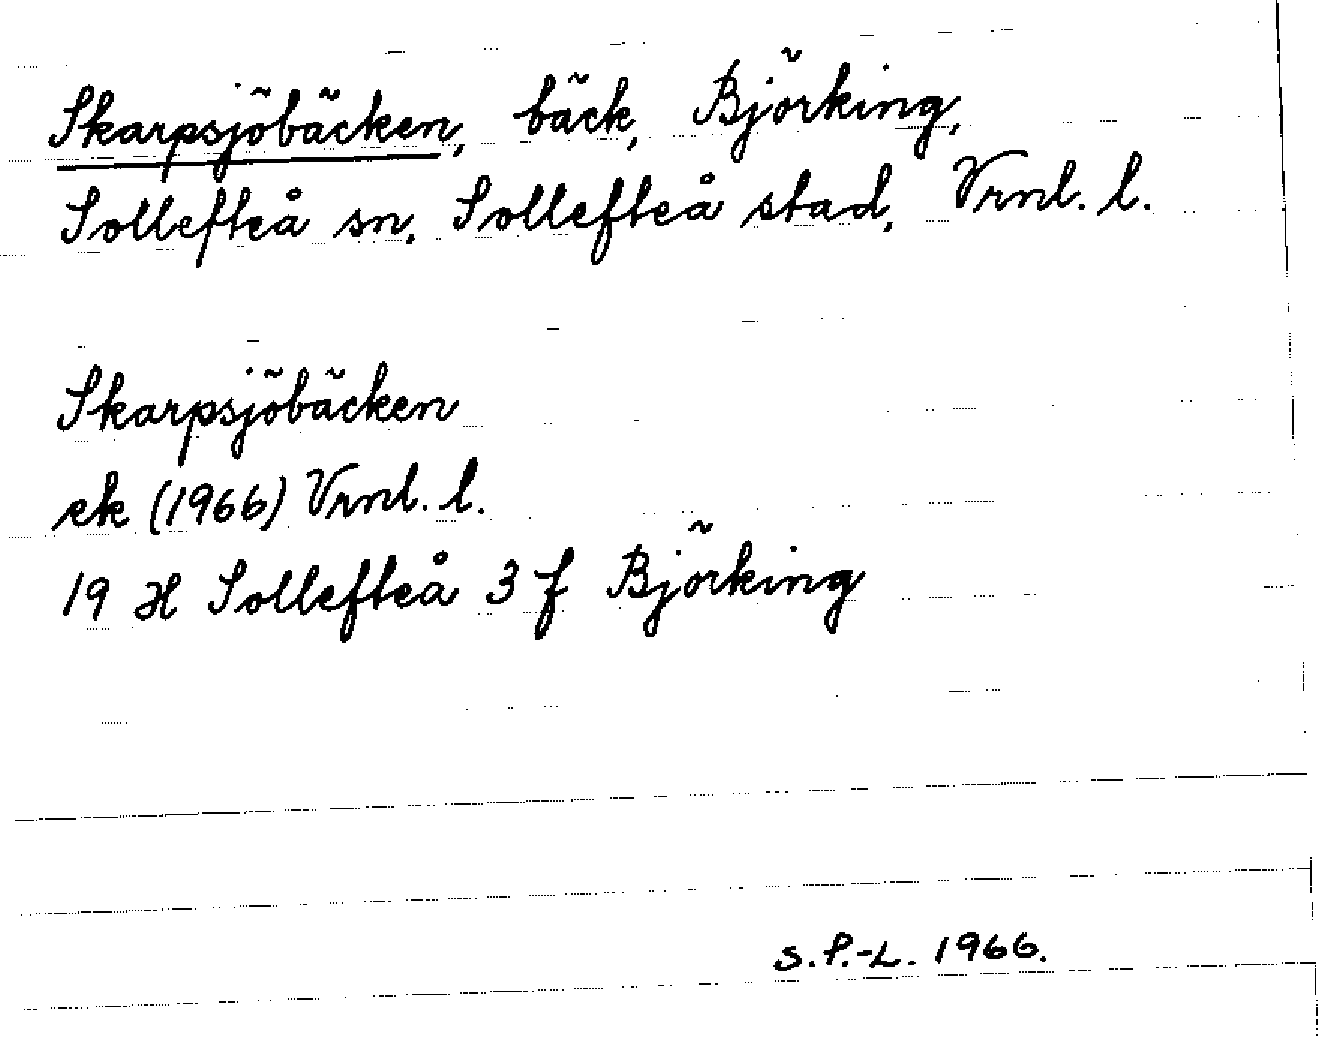 Skarpsjöbäcken, bäck, Björking,
Sollefteå sn. Sollefteå stad, Vrnl. l.
Skarpsjöbäcken
ek (1966) Vrnl. l.
19 H Sollefteå 3 f Björking
S.P.-L. 1966.